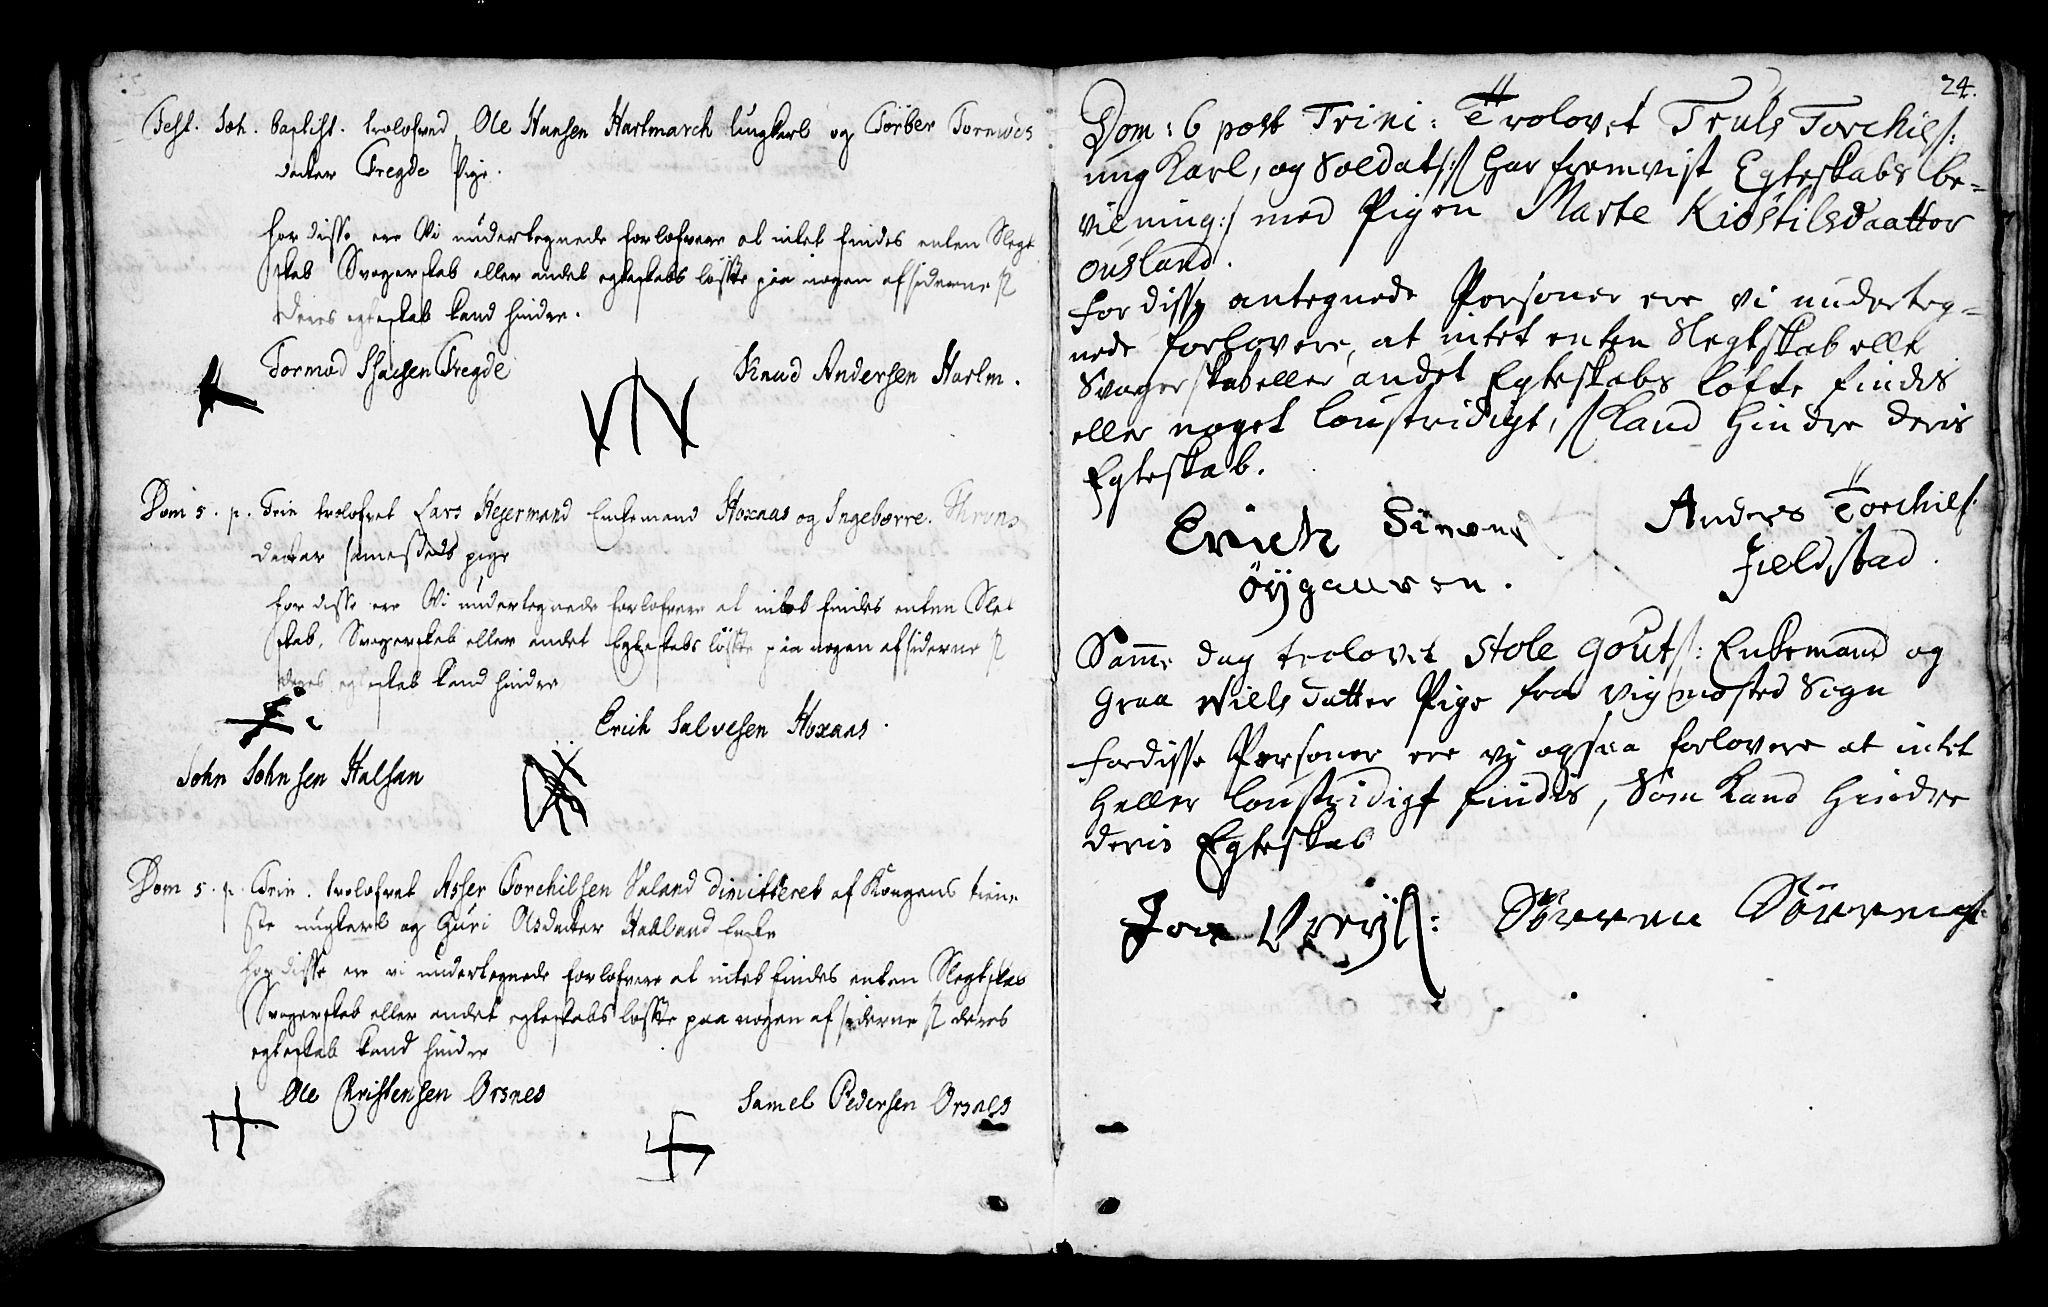 Fest. Joh. Baptist. trolofved Ole Hansen Hartmarch ungkarl og Torber Tormods
datter Fregde Pige.
for disse ere Vi undertegnede forlofvere at intet findes enten Slegt
skab Svogerskab eller andet egteskabs løffte paa nogen af siderne s
deres egteskab kand hindre.
Tormod Isacsen Fregde Knud Andersen Hartm.
Dom 5. p. Trin trolofvet Lars Hejermand Enkemand Hoxaas og Ingeborre. Throns
datter sammesteds pige
for disse ere Vi undertegnede forlofvere at intet findes enten Slet
skab, Svogerskab eller andet Egteskabs løffte paa nogen af siderne s
deres egteskab kand hindre
Erich Salvesen Hoxaas.
John Johnsen Halsaa
Dom 5. p. Trin. trolofvet Asser Torchilsen Valand dimitteret af Kongens tiene
ste ungkarl og Guri Olsdatter Habland Enke
for disse ere vi undertegnede forlofvere at intet findes enten Slegtskab
Svogerskab eller andet egteskabs løffte paa nogen af siderne s deres
egteskab kand hindre
Ole Christensen Orsnes Samel Pedersen Orsnes
24.
Dom: 6 post Trini: Trolovet Truls Torchils:
ung Karl, og Soldat /: s har fremvist Egteskabs be-
vilning :/ med Pigen Marte Kiøstilsdaatter
ousland.
For disse antegnede Personer ere vi underteg-
nede forlovere, at intet enten Slegtskab ellr
Svogerskab eller andet Egteskabs løfte findes
eller noget loustridigt, s Kand hindre deris
Egteskab.
Erich Simons Anders Torchils:
øygaarden. Fieldstad.
Samme dag trolovet Stole Gouts: Enkemand og
Graa Niels Datter Pige fra Vigmosted Sogn
for disse Personer ere vi ogsaa forlovere at intet
heller loustridigt findes, Som Kand hindre
deris Egteskab
Sørren Sørrens: